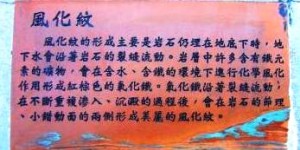 風化紋
風化紋的形成主要是岩石仍埋在地底下時，地
下水會沿著岩石的裂縫流動。岩層中許多含有鐵元
素的礦物，會在含水、含鐵的環境下進行化學風化
作用形成紅棕色的氧化鐵。氧化鐵沿著裂縫流動；
在不斷重複滲入、沉澱的過程後，會在岩石的節理
、小錯動面的兩側形成美麗的風化紋。